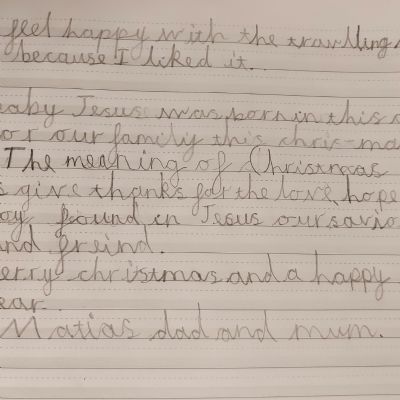 feel happy with the travlling
because I liked it.
aby Jesus was born in this
or our family this chris-ma
The meaning of Christmas
s give thanks for the love, hope
oy found in Jesus our savio
nd freind.
erry christmas and a happy
ear.
Matias dad and mum.